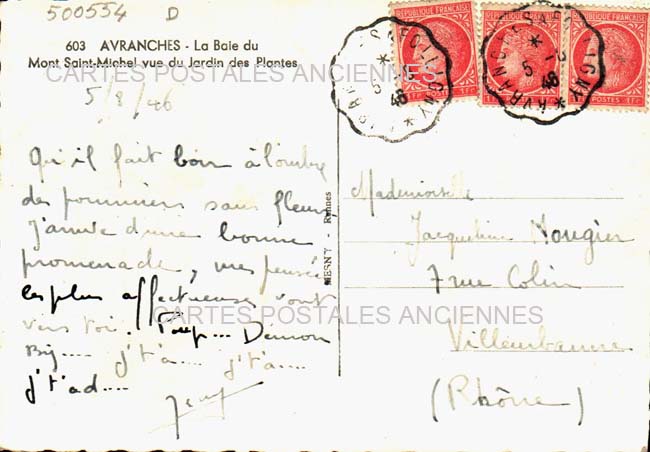 500554 D
603 AVRANCHES - La Baie du
Mont Saint-Michel vue du Jardin des Plantes
CARTES POSTALES ANCIENNES
5/8/46
Qu'il fait bon à l'ombre
des pommiers sans fleurs
J'arrive d'une bonne
promenade, mes pensées
les plus affectueuses vont
vers toi. Démon
j't'a.... j't'a....
j't'ad....
MESNY - Rennes
REPUBLIQUE FRANÇAISE
POSTES 1F
REPUBLIQUE FRANÇAISE
POSTES 1F
REPUBLIQUE FRANÇAISE
POSTES 1F
Mademoiselle
Jacqueline Nougier
7 rue Colin
CARTES POSTALES ANCIENNES
Villeurbanne
(Rhône)